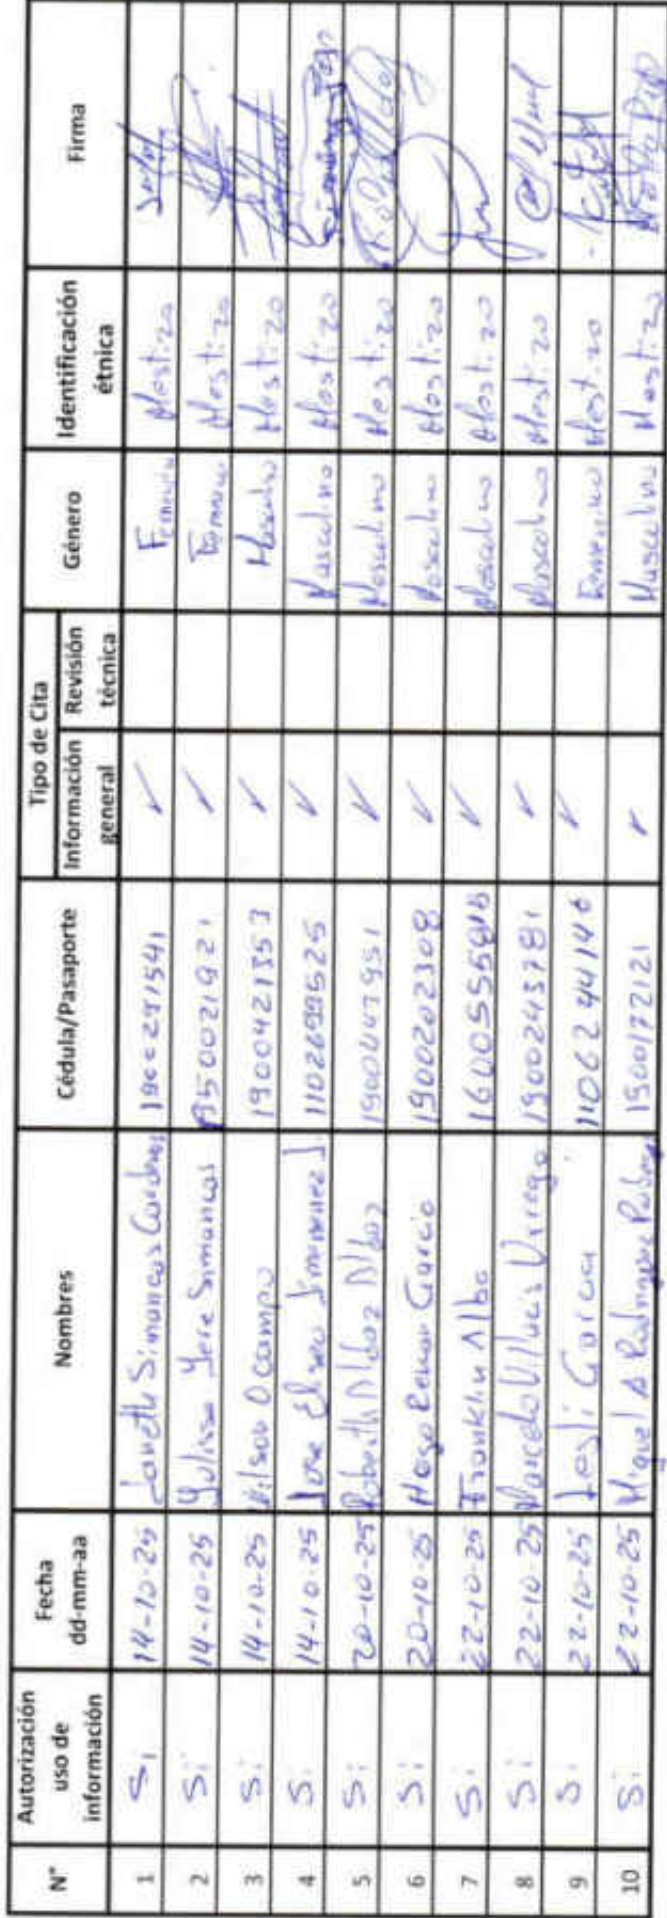 N° Autorización uso de información Fecha dd-mm-aa Nombres Cédula/Pasaporte Tipo de Cita Información general Revisión técnica Género Identificación étnica Firma
1 Si 14-10-25 Janeth Simancas 1900291541 ✓ Mestizo
2 Si 14-10-25 Yulissa Jere Simancas ✓ Mestizo
3 Si 14-10-25 Wilson Ocampo 1900421353 ✓ Masculino Mestizo
4 Si 14-10-25 Jose Eliseo Jimenez J. 1102699525 ✓ Masculino Mestizo
5 Si 20-10-25 ✓ Masculino Mestizo
6 Si 20-10-25 Hugo Garcia 1900202308 ✓ Masculino Mestizo
7 Si 22-10-25 Franklin Alba ✓ Masculino Mestizo
8 Si 22-10-25 Marcelo 1900243781 ✓ Masculino Mestizo
9 Si 22-10-25 Lesli Garcia ✓ Femenino Mestizo
10 Si 22-10-25 Miguel A 1900172121 ✓ Masculino Mestizo